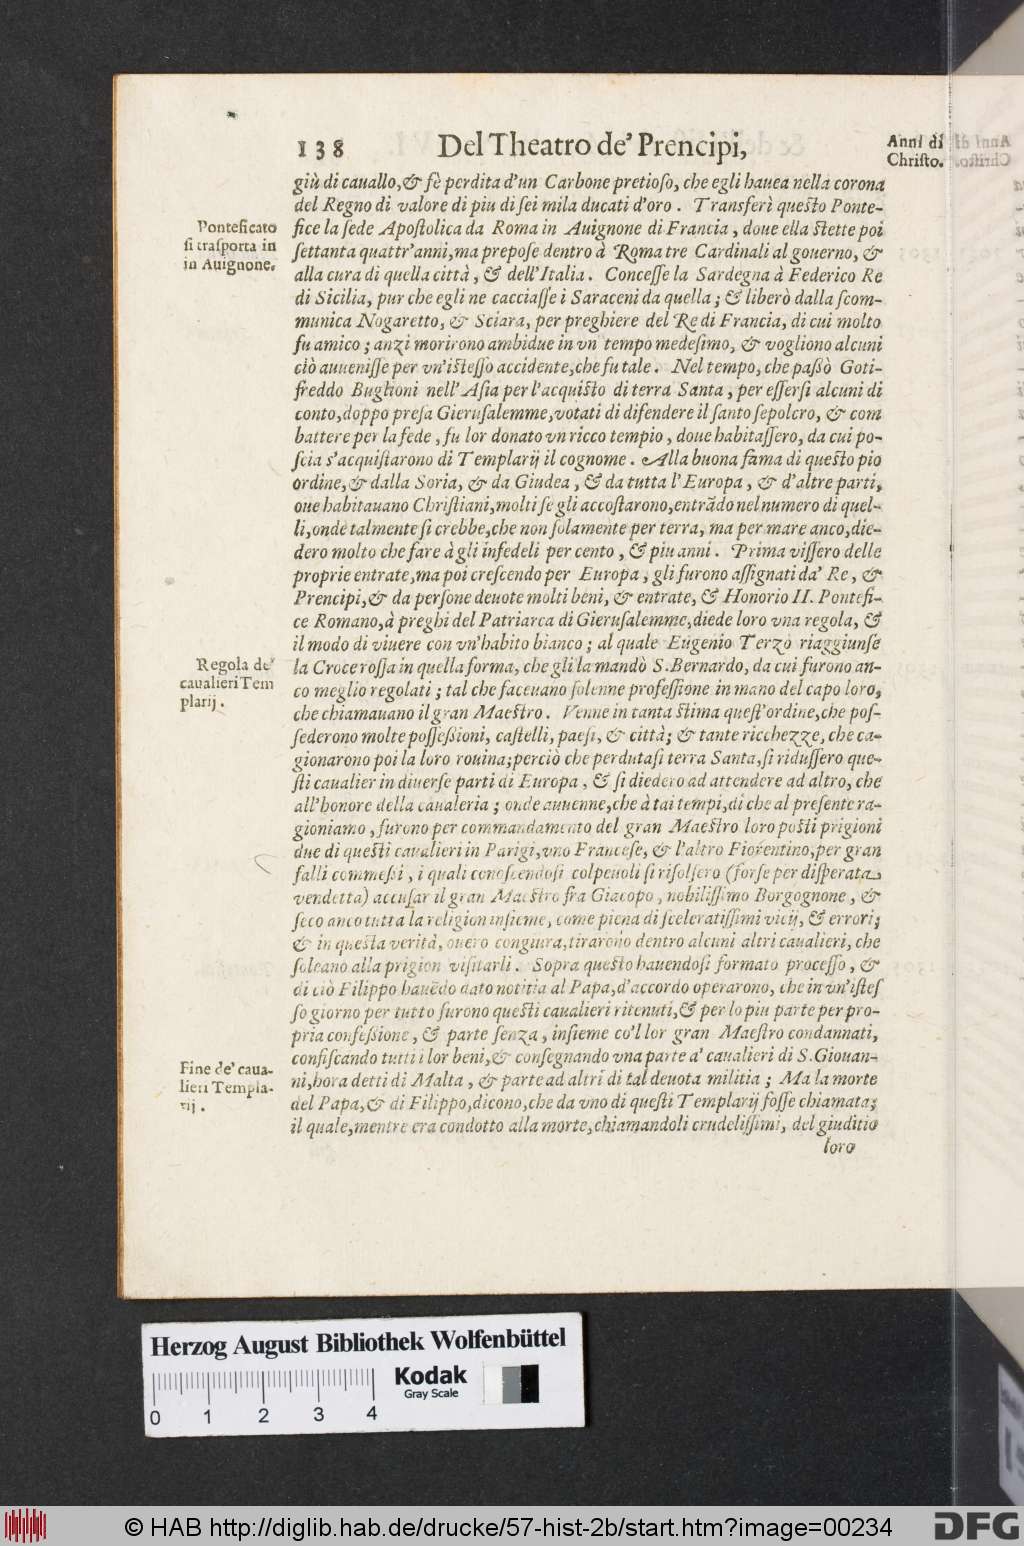 138 Del Theatro de' Prencipi,
Anni di
Christo.
giù di cauallo, & fè perdita d'un Carbone pretioſo, che egli hauea nella corona
del Regno di valore di piu di ſei mila ducati d'oro. Transferì queſto Ponte-
fice la ſede Apoſtolica da Roma in Auignone di Francia, doue ella ſtette poi
ſettanta quattr'anni, ma prepoſe dentro à Roma tre Cardinali al gouerno, &
alla cura di quella città, & dell'Italia. Conceſſe la Sardegna à Federico Re
di Sicilia, pur che egli ne cacciaſſe i Saraceni da quella; & liberò dalla ſcom-
munica Nogaretto, & Sciara, per preghiere del Re di Francia, di cui molto
fu amico; anzi morirono ambidue in vn tempo medeſimo, & vogliono alcuni
ciò aueniſſe per vn'iſteſſo accidente, che fu tale. Nel tempo, che paſſò Goti-
freddo Buglioni nell'Aſia per l'acquiſto di terra Santa, per eſſerſi alcuni di
conto, doppo preſa Gieruſalemme, votati di difendere il ſanto ſepolcro, & com
battere per la fede, fu lor donato vn ricco tempio, doue habitaſſero, da cui po-
ſcia s'acquiſtarono di Templarij il cognome. Alla buona fama di queſto pio
ordine, & dalla Soria, & da Giudea, & da tutta l'Europa, & d'altre parti,
oue habitauano Chriſtiani, molti ſe gli accoſtarono, entrãdo nel numero di quel-
li, onde talmente ſi crebbe, che non ſolamente per terra, ma per mare anco, die-
dero molto che fare à gli infedeli per cento, & piu anni. Prima viſſero delle
proprie entrate, ma poi creſcendo per Europa, gli furono aſſignati da' Re, &
Prencipi, & da perſone deuote molti beni, & entrate, & Honorio II. Pontefi-
ce Romano, à preghi del Patriarca di Gieruſalemme, diede loro vna regola, &
il modo di viuere con vn'habito bianco; al quale Eugenio Terzo riaggiunſe
la Croce roſſa in quella forma, che gli la mandò S. Bernardo, da cui furono an-
co meglio regolati; tal che faceuano ſolenne profeſſione in mano del capo loro,
che chiamauano il gran Maeſtro. Venne in tanta ſtima queſt'ordine, che poſ-
ſederono molte poſſeßioni, caſtelli, paeſi, & città; & tante ricchezze, che ca-
gionarono poi la loro rouina; perciò che perdutaſi terra Santa, ſi riduſſero que-
ſti caualier in diuerſe parti di Europa, & ſi diedero ad attendere ad altro, che
all'honore della caualeria; onde auuenne, che à tai tempi, di che al preſente ra-
gioniamo, furono per commandamento del gran Maeſtro loro poſti prigioni
due di queſti caualieri in Parigi, vno Franceſe, & l'altro Fiorentino, per gran
falli commeſſi, i quali conoſcendoſi colpeuoli ſi riſolſero (forſe per diſperata
vendetta) accuſar il gran Maeſtro fra Giacopo, nobiliſſimo Borgognone, &
ſeco anco tutta la religion inſieme, come piena di ſceleratiſſimi vicij, & errori;
& in queſta verità, ouero congiura, tirarono dentro alcuni altri caualieri, che
ſoleano alla prigion viſitarli. Sopra queſto hauendoſi formato proceſſo, &
di ciò Filippo hauẽdo dato notitia al Papa, d'accordo operarono, che in vn'iſteſ
ſo giorno per tutto furono queſti caualieri ritenuti, & per lo piu parte per pro-
pria confeßione, & parte ſenza, inſieme co'l lor gran Maeſtro condannati,
confiſcando tutti i lor beni, & conſegnando vna parte a' caualieri di S. Giouan-
ni, hora detti di Malta, & parte ad altri di tal deuota militia; Ma la morte
del Papa, & di Filippo, dicono, che da vno di queſti Templarij foſſe chiamata;
il quale, mentre era condotto alla morte, chiamandoli crudeliſſimi, del giuditio
loro
Ponteficato
ſi traſporta in
in Auignone.
Regola de'
caualieri Tem
plarij.
Fine de' caua-
lieri Templa-
rij.
Herzog August Bibliothek Wolfenbüttel
Kodak
Gray Scale
0 1 2 3 4
© HAB http://diglib.hab.de/drucke/57-hist-2b/start.htm?image=00234
DFG